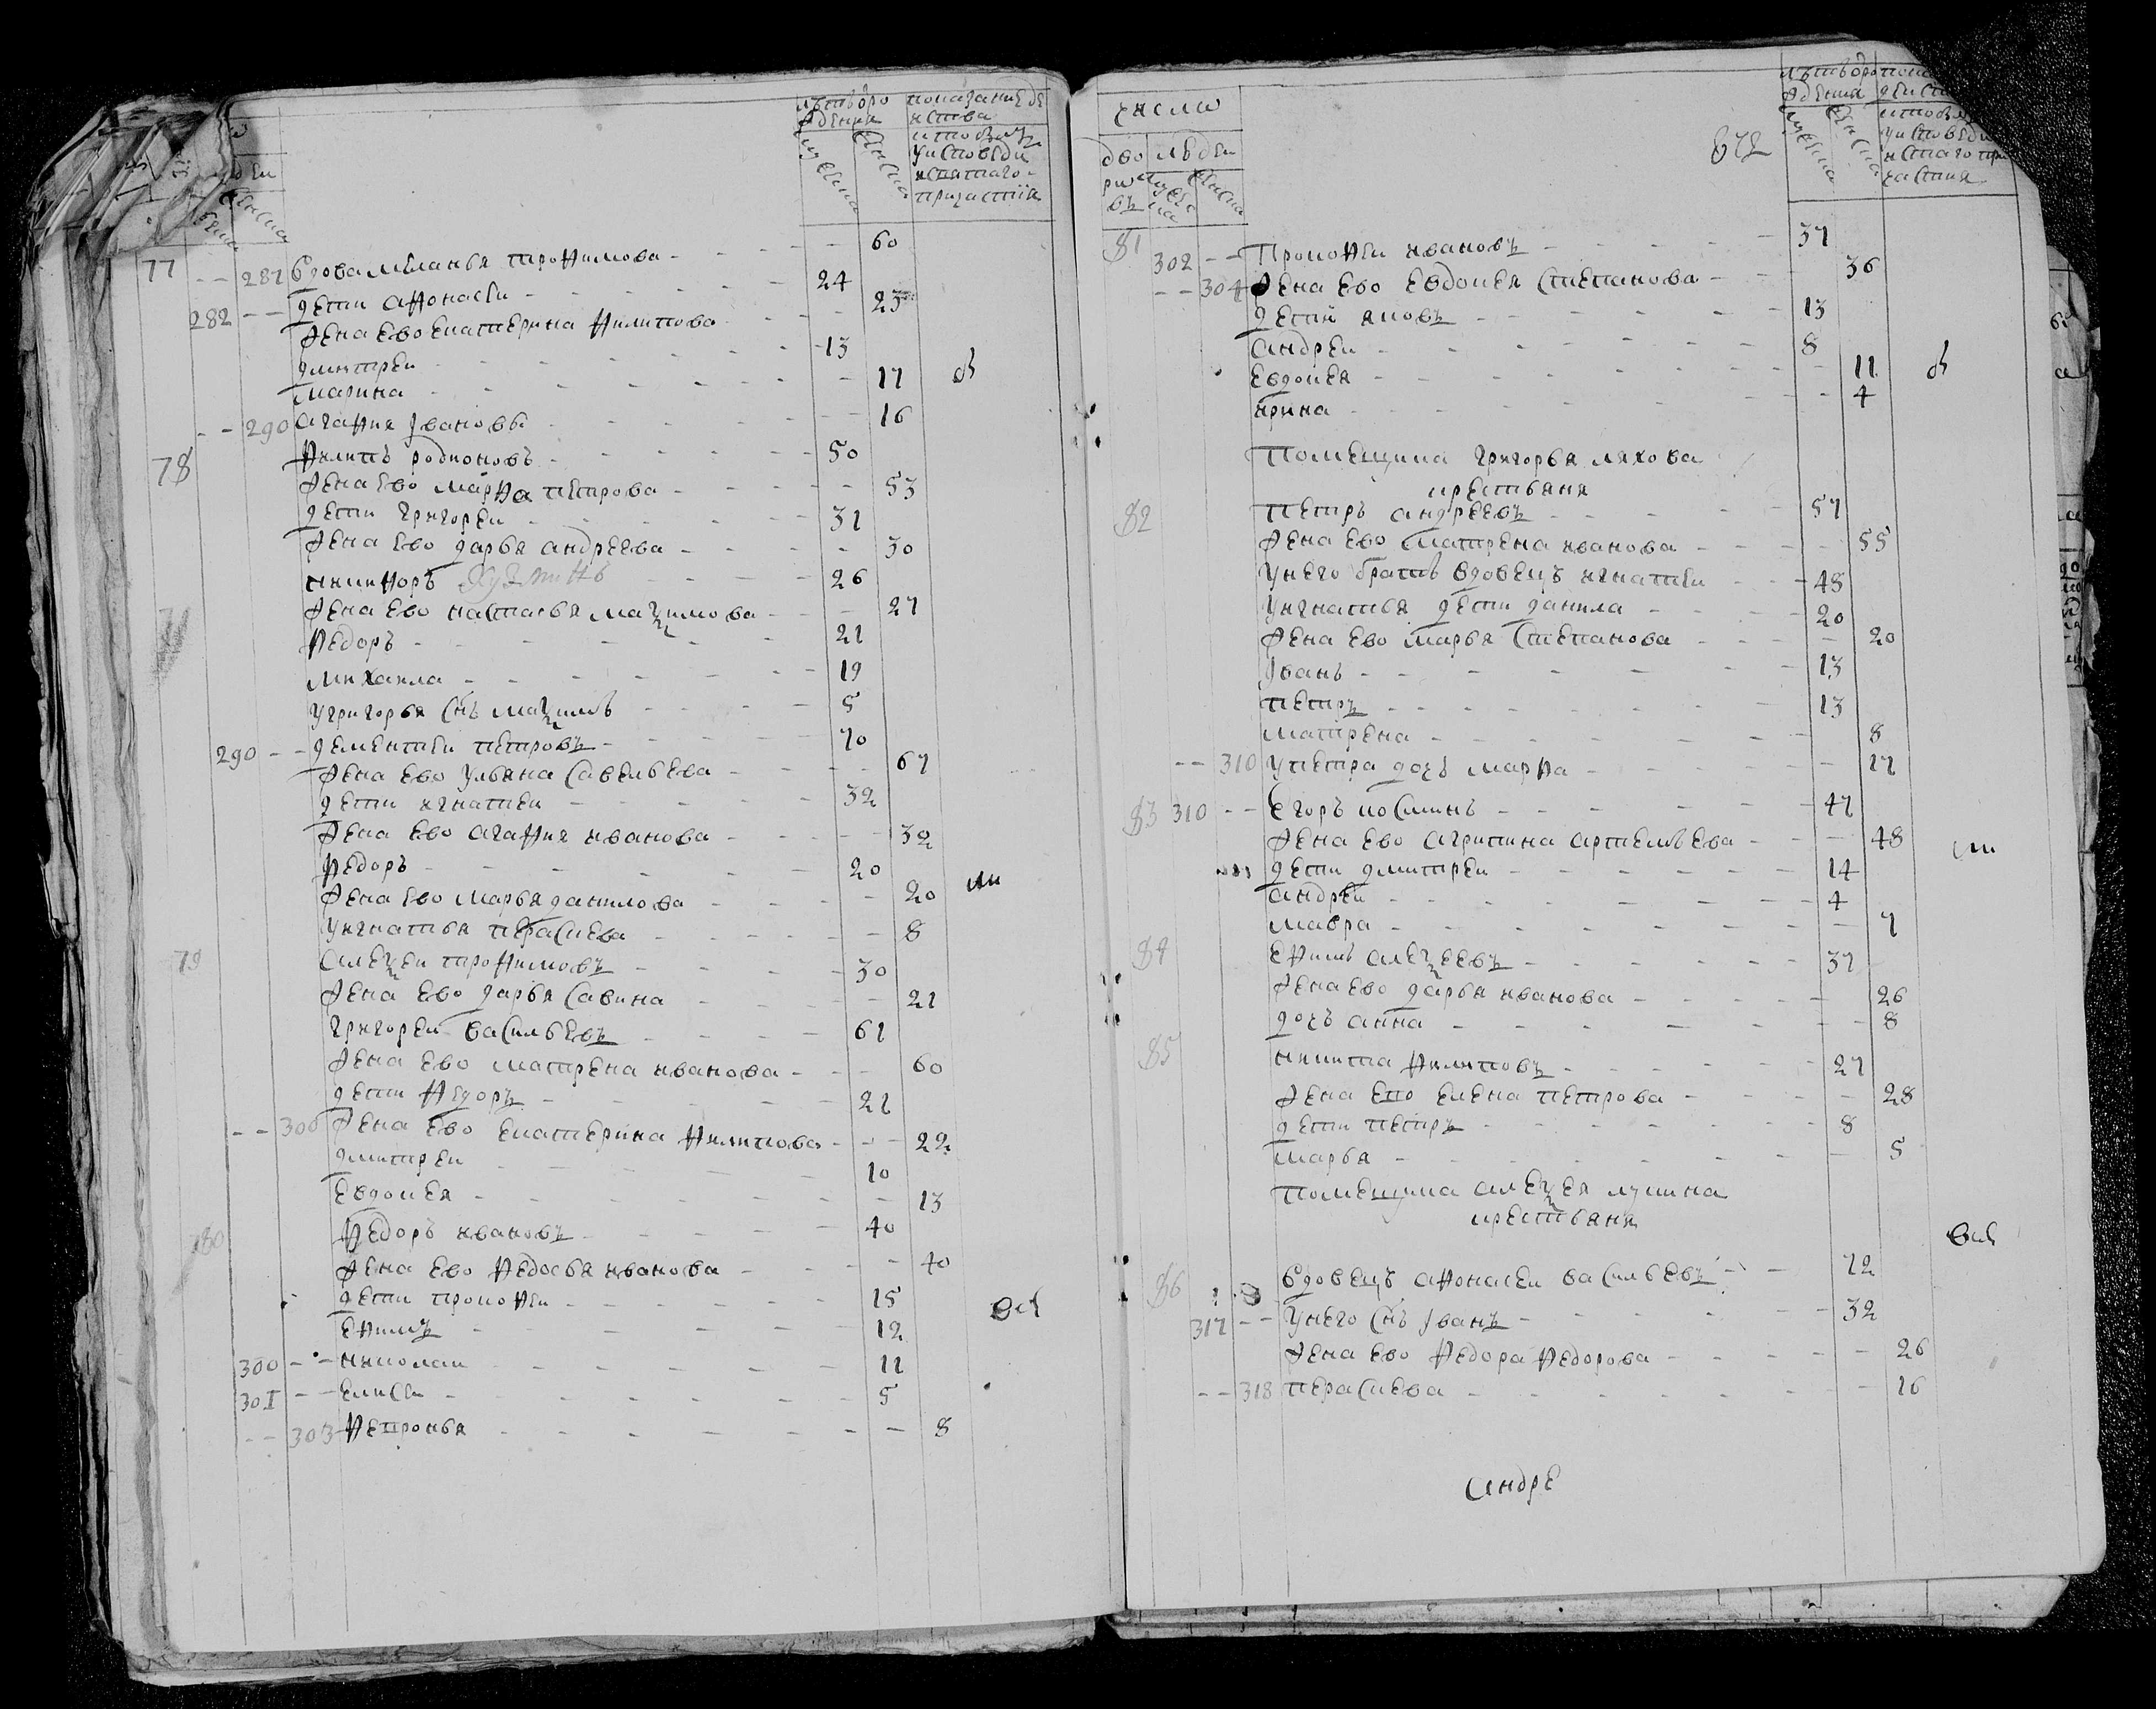 летъ во ро
ждения
мужеска
женска
показание де
иства
кто былъ
у исповеди
и святаго
причастия
77 -- 287 вдова меланья трофимова - 60
282 -- дети афонасеи - 24
жена ево екатерина филипова - 23
дмитреи - 13
марина - 17
-- 290 агафия Ивановы - 16
78 филипъ родионовъ - 50
жена ево марфа петрова - 53
дети григореи - 31
жена ево дарья андреева - 30
никифоръ - 26
жена ево настасья маѯимова - 27
федоръ - 21
михаила - 19
у григорья снъ маѯимъ - 5
290 -- дементеи петровъ - 70
жена ево ульяна савельева - 67
дети игнатеи - 32
жена ево агафия иванова - 32
федоръ - 20
жена ево марья данилова - 20
у игнатья пераскева - 8
79 алеѯеи трофимовъ - 30
жена ево дарья савина - 21
григореи васильевъ - 61
жена ево матрена иванова - 60
дети федоръ - 21
-- 300 жена ево екатерина филипова - 22
дмитреи - 10
евдокея - 13
80 федоръ ивановъ - 40
жена ево федосья иванова - 40
дети прокофеи - 15
ефимъ - 12
300 -- николаи - 11
301 -- елисеи - 5
-- 303 фепронья - 8
число
дво
ро
въ
людеи
мужес
ка
женска
672
летъ во ро
ждения
мужеска
женска
кто бы
у исповеди
и святаго при
частия
81 302 -- Прокофеи ивановъ - 37
-- 304 жена ево евдокея степанова - 36
дети яковъ - 13
андреи - 8
евдокея - 11
ирина - 4
помещика григорья ляхова
крестьяня
82 петръ андреевъ - 57
жена ево матрена иванова - 55
у него братъ вдовецъ игнатеи - 48
у игнатья дети данила - 20
жена ево марья степанова - 20
Иванъ - 13
петръ - 13
матрена - 8
-- 310 у петра дочь марфа - 17
83 310 -- егоръ косминъ - 47
жена ево агрипина артемьева - 48
дети дмитреи - 14
андреи - 4
мавра - 7
84 ефимъ алеѯеевъ - 37
жена ево дарья иванова - 26
дочь анна - 8
85 никита филиповъ - 27
жена ево елена петрова - 28
дети петръ - 8
марья - 5
помещика алеѯея лукина
крестьяня
86 вдовецъ афонасеи васильевъ - 72
317 -- у него снъ Иванъ - 32
жена ево федора федорова - 26
-- 318 пераскева - 16
андре